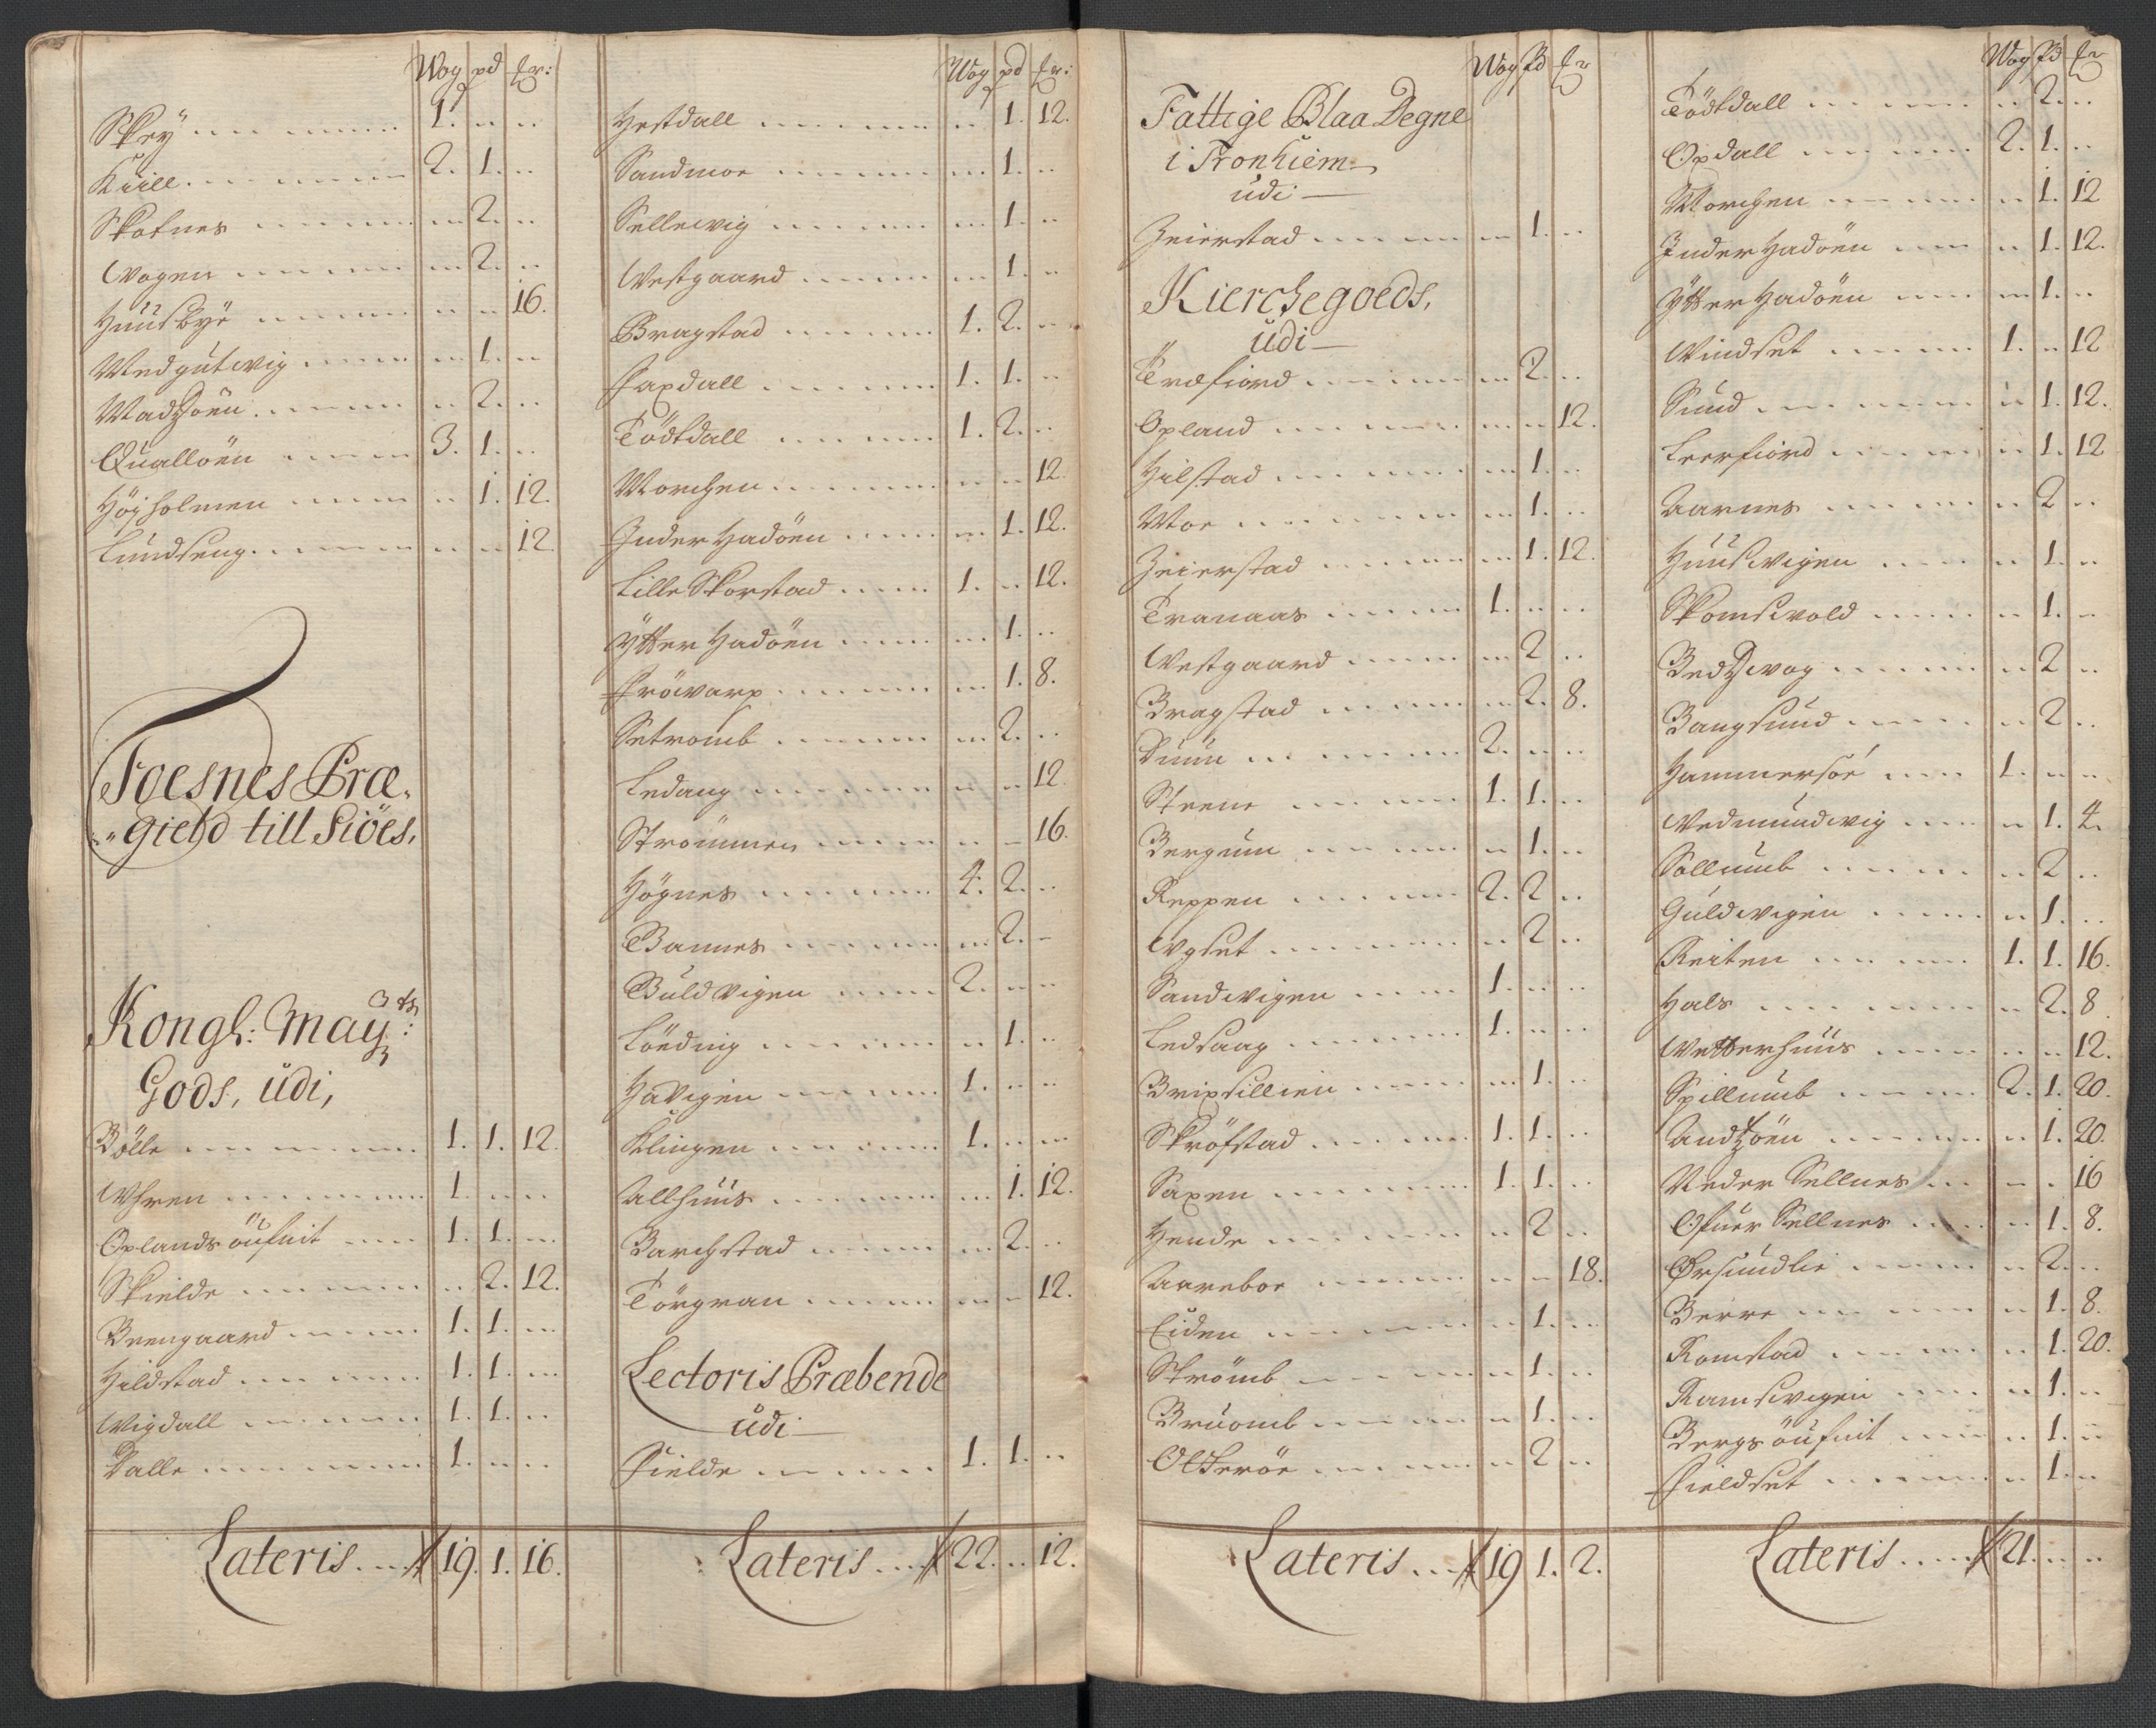 Wog pd ..:
Skey 1. .. ..
Kiill 2. 1. ..
Skotnes .. 2. ..
Wogen .. 2. ..
Huusbye .. .. 16.
Medgutwig .. 1. ..
Madsøen .. 2. ..
Qualløen 3. 1. ..
Høyholmen .. 1. 12.
Lundseng .. .. 12.
Foesnes Præ,
„gield till Siöes,
Kongl: May:ts
Gods, udi,
Bølle 1. 1. 12.
Whren 1. .. ..
Oplands öufuit 1. 1. ..
Skielde .. 2. 12.
Brengaard 1. 1. ..
Hildstad 1. 1. ..
Wigdall 1. 1. ..
Dalle 1. .. ..
Lateris 19. 1. 16.
Wog pd
Hestdall .. 1. 12.
Sandmoe .. 1. ..
Sellewig .. 1. ..
Westgaard .. 1. ..
Bragstad 1. 2. ..
Faxdall 1. 1. ..
Tödtdall 1. 2. ..
Morchen .. .. 12.
Inder Hadöen .. 1. 12.
Lille Skorstad 1. .. 12.
Ytter Hadöen .. 1. ..
Fröwarp .. 1. 8.
Setromb .. 2. ..
Ledang .. .. 12.
Strömmen .. .. 16.
Högnes 4. 2. ..
Bannes .. 2. ..
Buldvigen 2. .. ..
Löeding .. 1. ..
Havigen 1. .. ..
Klingen 1. .. ..
Allhuus .. 1. 12.
Barchstad .. 2. ..
Törgran .. .. 12.
Lectoris Præbende
udi
Fielde 1. 1. ..
Lateris 22. .. 12.
Wog Pd
Fattige Blaa Degne
i Tronhiem
udi
Zeierstad .. 1. ..
Kierchegoeds,
udi
Træfiord .. 2. ..
Opland .. .. 12.
Hilstad .. 1. ..
Moe .. 1. ..
Zeierstad .. 1. 12.
Tranaas 1. .. ..
Westgaard .. 2 ..
Bragstad .. 2. 8.
Duun 2. .. ..
Steene 1. 1. ..
Bergum .. 1. ..
Reppen 2. 2 ..
Wgset .. 2 ..
Sandwigen 1. .. ..
Ledsaag 1. .. ..
Brixsillien .. 1. ..
Skröfstad 1. 1. ..
Saxen 1. 1. ..
Hende .. 2 ..
Aareboe .. .. 18.
Eiden .. 1. ..
Strömb .. 1. ..
Bruomb .. 1. ..
Olteröe .. 2 ..
Lateris 19 1. 2.
Wog Pd
Tödtdall .. 2. ..
Opdall 2. 1. ..
Morchen .. 1. 12
Inder Hadöen .. 1. 12.
Ytter Hadöen .. 1. ..
Windset 1. .. 12
Sund .. 1. 12.
Leerfiord .. 1. 12
Aarnes .. 2 ..
Huuswigen .. 1. ..
Skomsvold .. 1. ..
Bedswog .. 2 ..
Bangsund .. 2 ..
Hammersöe 1. .. ..
Wedmundwig .. 1. 4.
Sollumb .. 2 ..
Guldvigen .. 1. ..
Reiten 1. 1. 16.
Hals .. 2. 8
Wetterhuus .. .. 12.
Spillumb 2. 1. 20.
Andzöen .. 1. 20.
Neder Sellnes .. .. 16
Ofuer Sellnes .. 1. 8.
Örsundlie .. 2. ..
Berre .. 1. 8.
Romstad .. 1. 20.
Ramsvigen .. 1. ..
Bergs öufuit .. 1. ..
Fieldset .. 1. ..
Lateris 21. .. ..